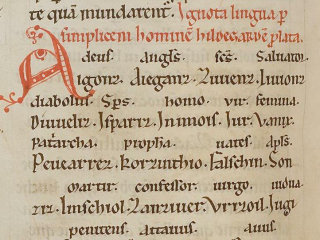 te quā mundarent᷑. Ignota lingua ꝑ
simplicem hominē hildegardem ꝓlata.
deus. angls. scs̄. Saluator.
Aigonz. Aieganz. Zuuenz. Liuionz
diabolus. Sps. homo. vir. femina.
Diuueliz. Isparriz. Inimois. Iur. Vanix.
Patarcha. propha. uates. apls.
Peuearrez. korzinthio. Falschin. Son
martir. confessor. uirgo. uidua
ziz. Linschiol. Zanziuer. Vrrizoil. Iugi
penitens. attauus. auus.